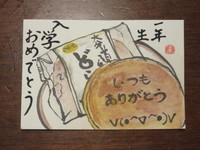 一年生
入学
おめでとう
大発見
どら
いつも
ありがとう
v(•^▽^•)v